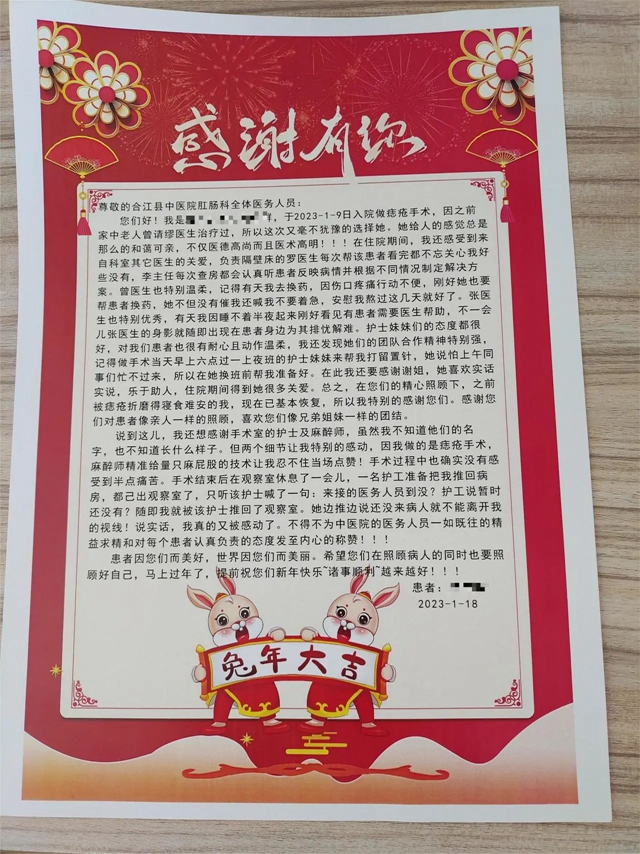 感谢有你
尊敬的合江县中医院肛肠科全体医务人员：
您们好！我是 ，于2023-1-9日入院做痔疮手术，因之前
家中老人曾请缪医生治疗过，所以这次又毫不犹豫的选择她。她给人的感觉总是
那么的和蔼可亲，不仅医德高尚而且医术高明！！！在住院期间，我还感受到来
自科室其它医生的关爱，负责隔壁床的罗医生每次帮该患者看完都不忘关心我好
些没有，李主任每次查房都会认真听患者反映病情并根据不同情况制定解决方
案。曾医生也特别温柔，记得有天我去换药，因伤口疼痛行动不便，刚好她也要
帮患者换药，她不但没有催我还喊我不要着急，安慰我熬过这几天就好了。张医
生也特别优秀，有天我因睡不着半夜起来刚好看见有患者需要医生帮助，不一会
儿张医生的身影就随即出现在患者身边为其排忧解难。护士妹妹们的态度都很
好，对我们患者也很有耐心且动作温柔，我还发现她们的团队合作精神特别强，
记得做手术当天早上六点过一上夜班的护士妹妹来帮我打留置针，她说怕上午同
事们忙不过来，所以在她换班前帮我准备好。在此我还要感谢谢姐，她喜欢实话
实说，乐于助人，住院期间得到她很多关爱。总之，在您们的精心照顾下，之前
被痔疮折磨得寝食难安的我，现在已基本恢复，所以我特别的感谢您们。感谢您
们对患者像亲人一样的照顾，喜欢您们像兄弟姐妹一样的团结。
说到这儿，我还想感谢手术室的护士及麻醉师，虽然我不知道他们的名
字，也不知道长什么样子。但两个细节让我特别的感动，因我做的是痔疮手术，
麻醉师精准给量只麻屁股的技术让我忍不住当场点赞！手术过程中也确实没有感
受到半点痛苦。手术结束后在观察室休息了一会儿，一名护工准备把我推回病
房，都已出观察室了，只听该护士喊了一句：来接的医务人员到没？护工说暂时
还没有？随即我就被该护士推回了观察室。她边推边说还没来病人就不能离开我
的视线！说实话，我真的又被感动了。不得不为中医院的医务人员一如既往的精
益求精和对每个患者认真负责的态度发至内心的称赞！！！
患者因您们而美好，世界因您们而美丽。希望您们在照顾病人的同时也要照
顾好自己，马上过年了，提前祝您们新年快乐~诸事顺利~越来越好！！！
患者：
2023-1-18
兔年大吉